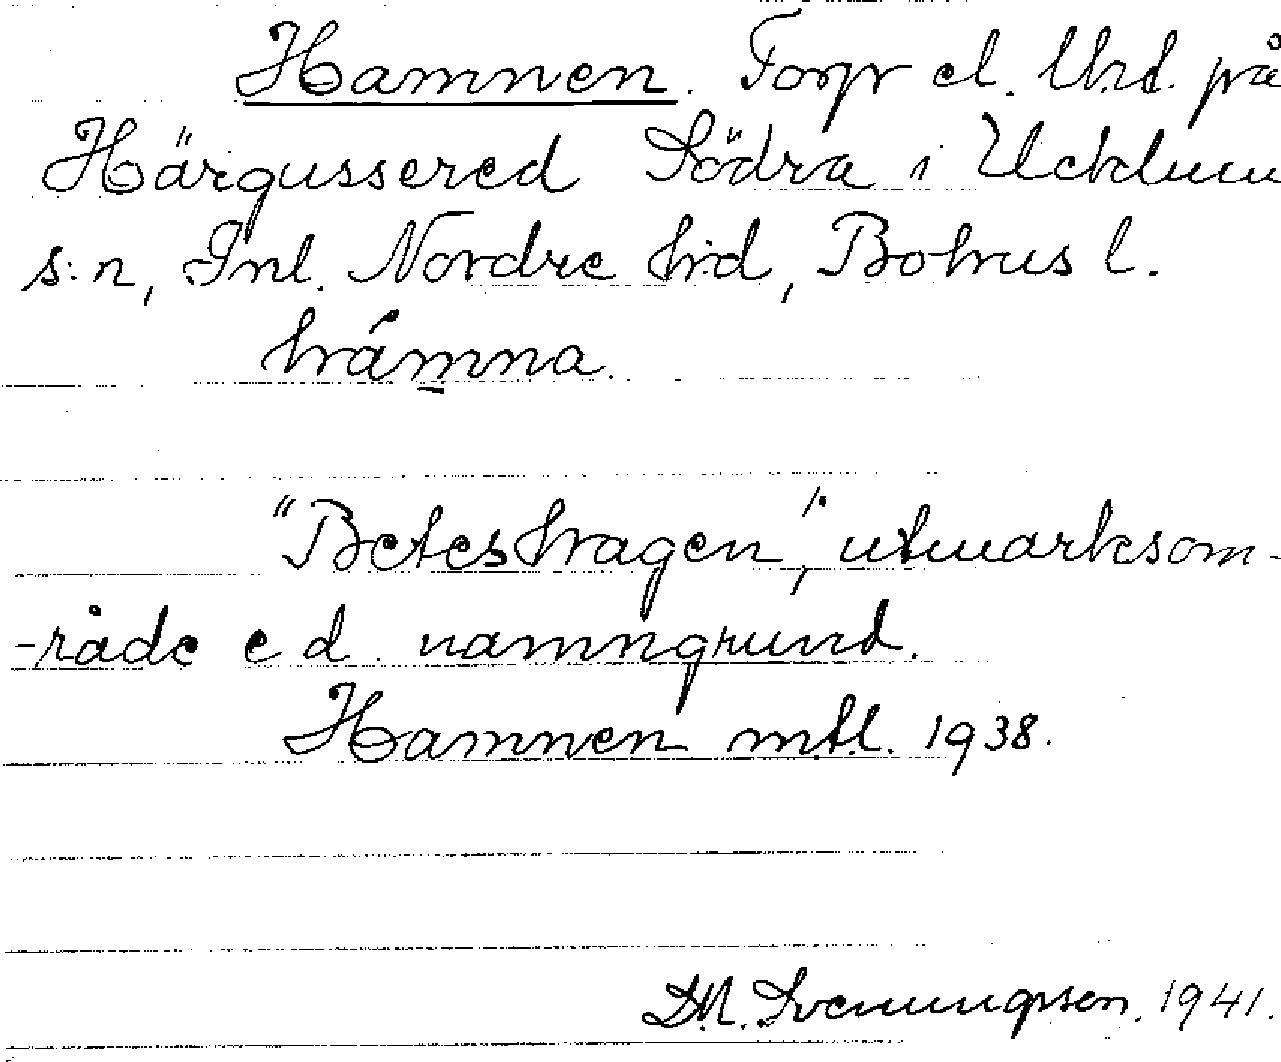 Hamnen. Torp el. lht. på
Härgussered Södra i Ucklum
s:n, Inl. Nordre hrd, Bohus l.
hámna.
"Beteshagen", utmarksom-
-råde e d namngrund.
Hamnen mtl. 1938.
D.A. Svenungsson. 1941.